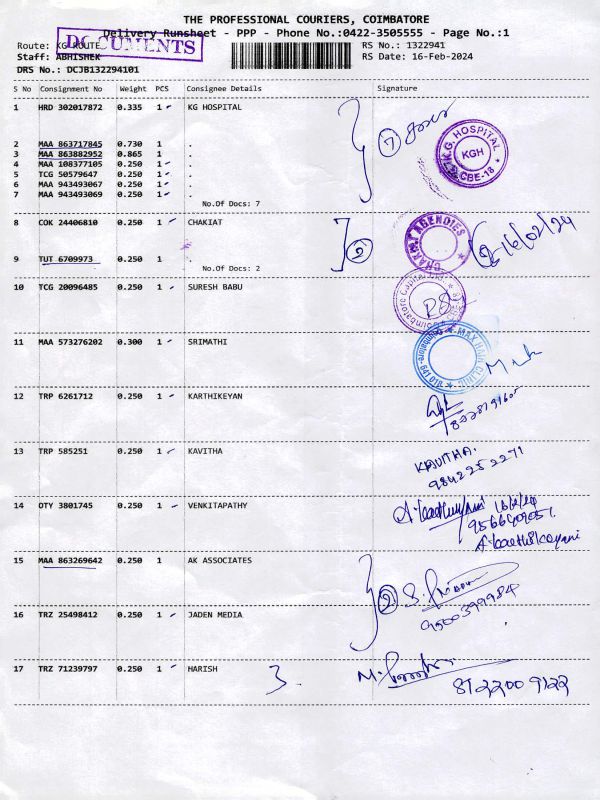 THE PROFESSIONAL COURIERS, COIMBATORE
Delivery Runsheet - PPP - Phone No.:0422-3505555 - Page No.:1
DOCUMENTS
Route: KG ROUTE
RS No.: 1322941
Staff: ABHISHEK
RS Date: 16-Feb-2024
DRS No.: DCJB132294101
S No Consignment No Weight PCS Consignee Details Signature
1 HRD 302017872 0.335 1 KG HOSPITAL
2 MAA 863717845 0.730 1 .
3 MAA 863882952 0.865 1 .
4 MAA 108377105 0.250 1 .
5 TCG 50579647 0.250 1 .
6 MAA 943493067 0.250 1 .
7 MAA 943493069 0.250 1 .
No.Of Docs: 7
7
K.G. HOSPITAL
KGH
CBE-18
8 COK 24406810 0.250 1 CHAKIAT
9 TUT 6709973 0.250 1 .
No.Of Docs: 2
2
CHAKIAT AGENCIES
16/02/24
10 TCG 20096485 0.250 1 SURESH BABU
11 MAA 573276202 0.300 1 SRIMATHI
12 TRP 6261712 0.250 1 KARTHIKEYAN
13 TRP 585251 0.250 1 KAVITHA
KAVITHA.
9842252271
14 OTY 3801745 0.250 1 VENKITAPATHY
15 MAA 863269642 0.250 1 AK ASSOCIATES
2
9500399984
16 TRZ 25498412 0.250 1 JADEN MEDIA
17 TRZ 71239797 0.250 1 HARISH
3.
8122009122